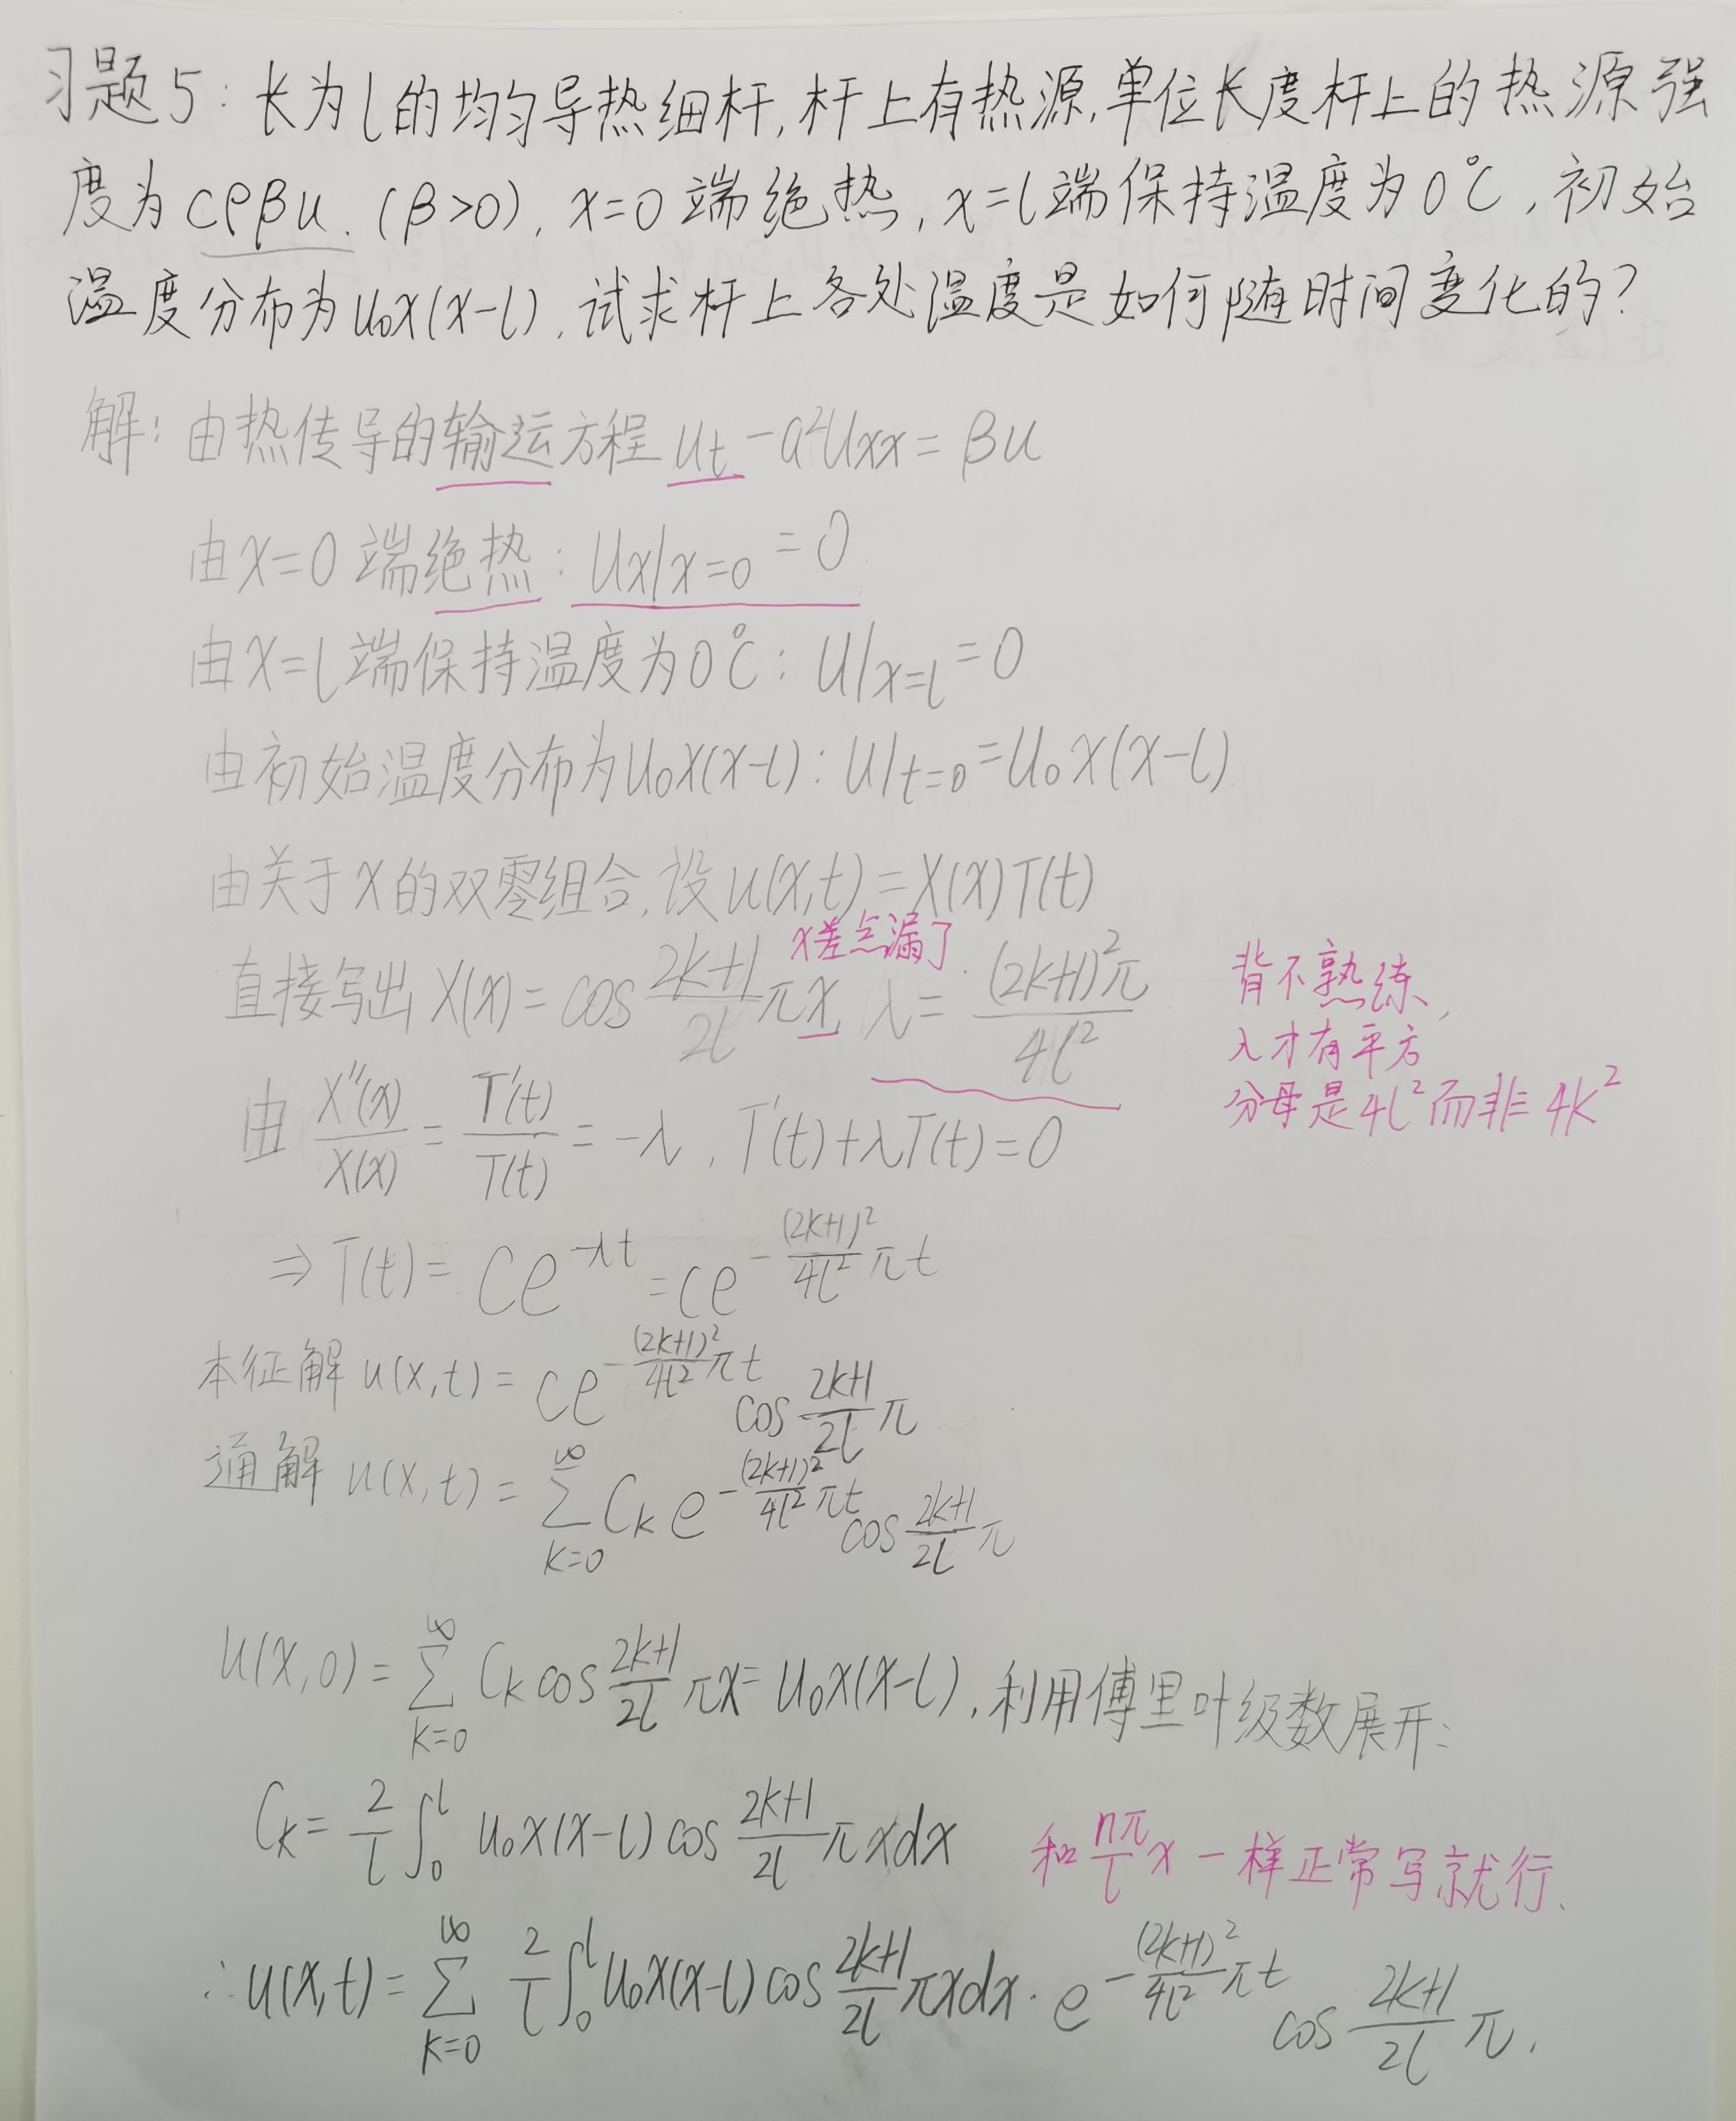 习题5: 长为l的均匀导热细杆,杆上有热源,单位长度杆上的热源强
度为cρβu.(β>0), x=0端绝热, x=l端保持温度为0℃, 初始
温度分布为u₀x(x-l), 试求杆上各处温度是如何随时间变化的?
解: 由热传导的输运方程 u_t - a²u_xx = βu
由x=0端绝热: u_x|x=0 = 0
由x=l端保持温度为0℃: u|x=l = 0
由初始温度分布为u₀x(x-l): u|t=0 = u₀x(x-l)
由关于x的双零组合, 设u(x,t)=X(x)T(t)
x差点漏了
直接写出X(x)= cos (2k+1)/2l πx, λ= (2k+1)²π/4l²
背不熟练,
λ才有平方
分母是4l²而非4k²
由 X''(x)/X(x) = T'(t)/T(t) = -λ, T'(t)+λT(t)=0
⇒ T(t)= Ce^(-λt) = Ce^(-(2k+1)²/4l² πt)
本征解 u(x,t)= Ce^(-(2k+1)²/4l² πt) cos (2k+1)/2l π
通解 u(x,t)= ∑_{k=0}^{∞} C_k e^(-(2k+1)²/4l² πt) cos (2k+1)/2l π
u(x,0)= ∑_{k=0}^{∞} C_k cos (2k+1)/2l πx = u₀x(x-l), 利用傅里叶级数展开:
C_k = 2/l ∫_0^l u₀x(x-l) cos (2k+1)/2l πxdx
和 nπ/l x 一样正常写就行.
∴u(x,t)= ∑_{k=0}^{∞} 2/l ∫_0^l u₀x(x-l) cos (2k+1)/2l πxdx · e^(-(2k+1)²/4l² πt) cos (2k+1)/2l π.